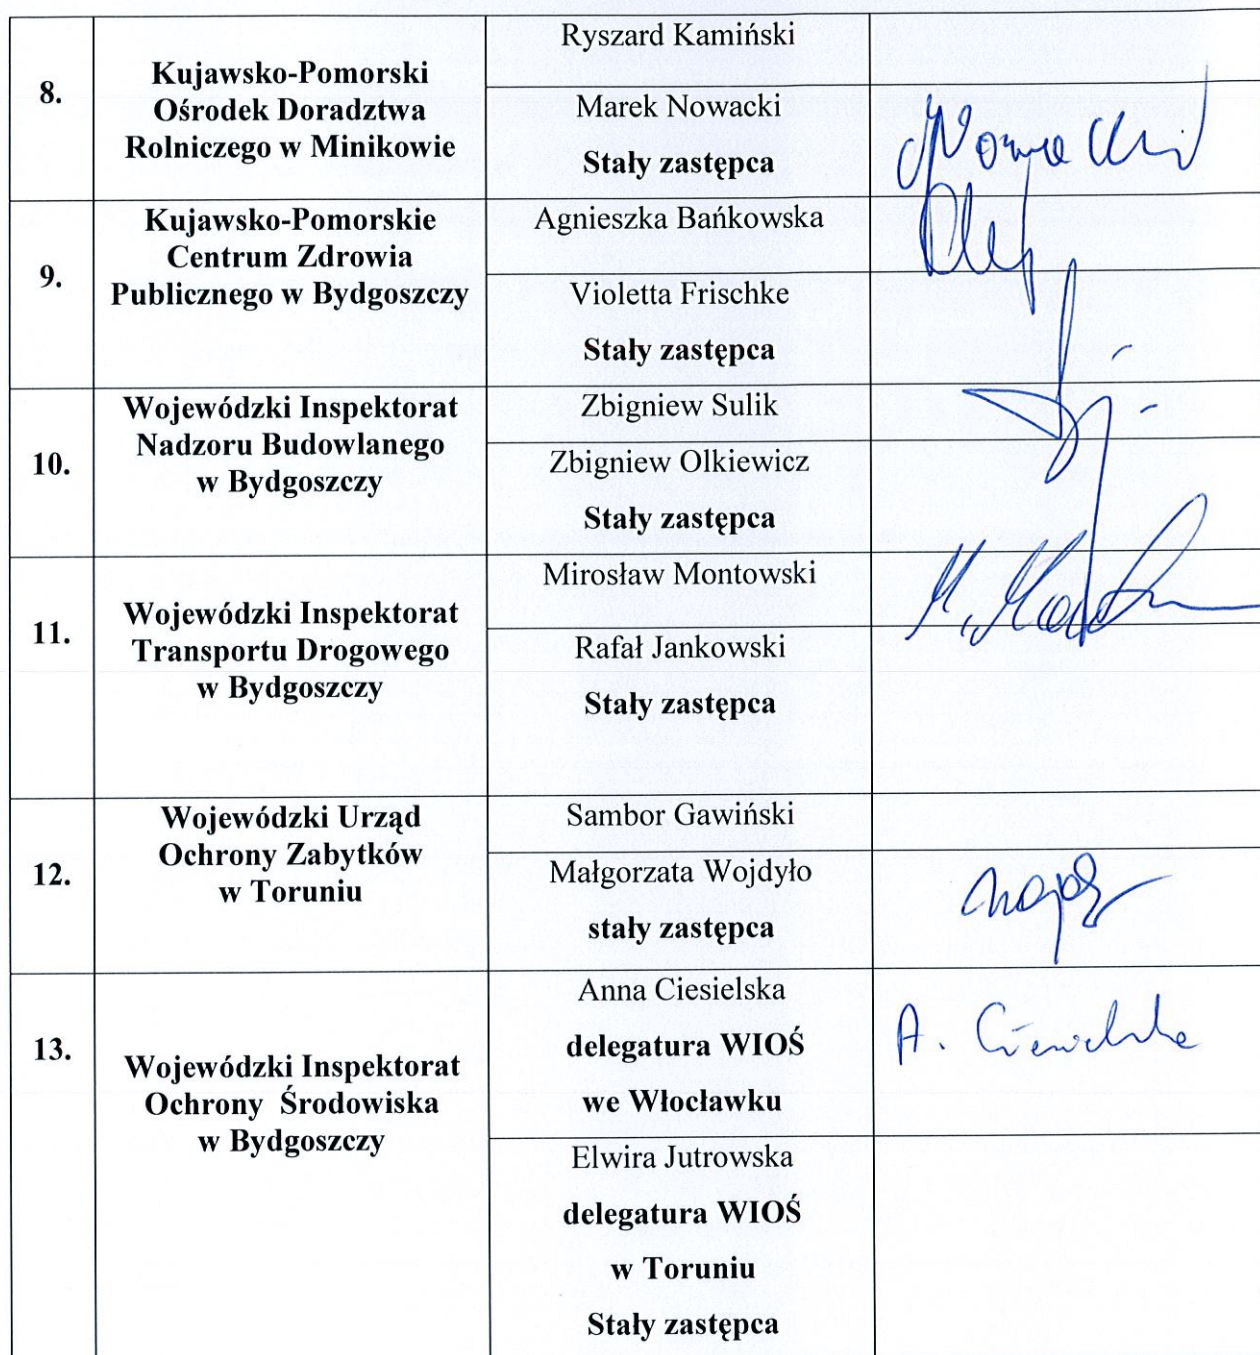 8.
Kujawsko-Pomorski
Ośrodek Doradztwa
Rolniczego w Minikowie
Ryszard Kamiński
Marek Nowacki
Stały zastępca
Nowacki
9.
Kujawsko-Pomorskie
Centrum Zdrowia
Publicznego w Bydgoszczy
Agnieszka Bańkowska
Violetta Frischke
Stały zastępca
10.
Wojewódzki Inspektorat
Nadzoru Budowlanego
w Bydgoszczy
Zbigniew Sulik
Zbigniew Olkiewicz
Stały zastępca
11.
Wojewódzki Inspektorat
Transportu Drogowego
w Bydgoszczy
Mirosław Montowski
Rafał Jankowski
Stały zastępca
12.
Wojewódzki Urząd
Ochrony Zabytków
w Toruniu
Sambor Gawiński
Małgorzata Wojdyło
stały zastępca
13.
Wojewódzki Inspektorat
Ochrony Środowiska
w Bydgoszczy
Anna Ciesielska
delegatura WIOŚ
we Włocławku
A. Ciesielska
Elwira Jutrowska
delegatura WIOŚ
w Toruniu
Stały zastępca